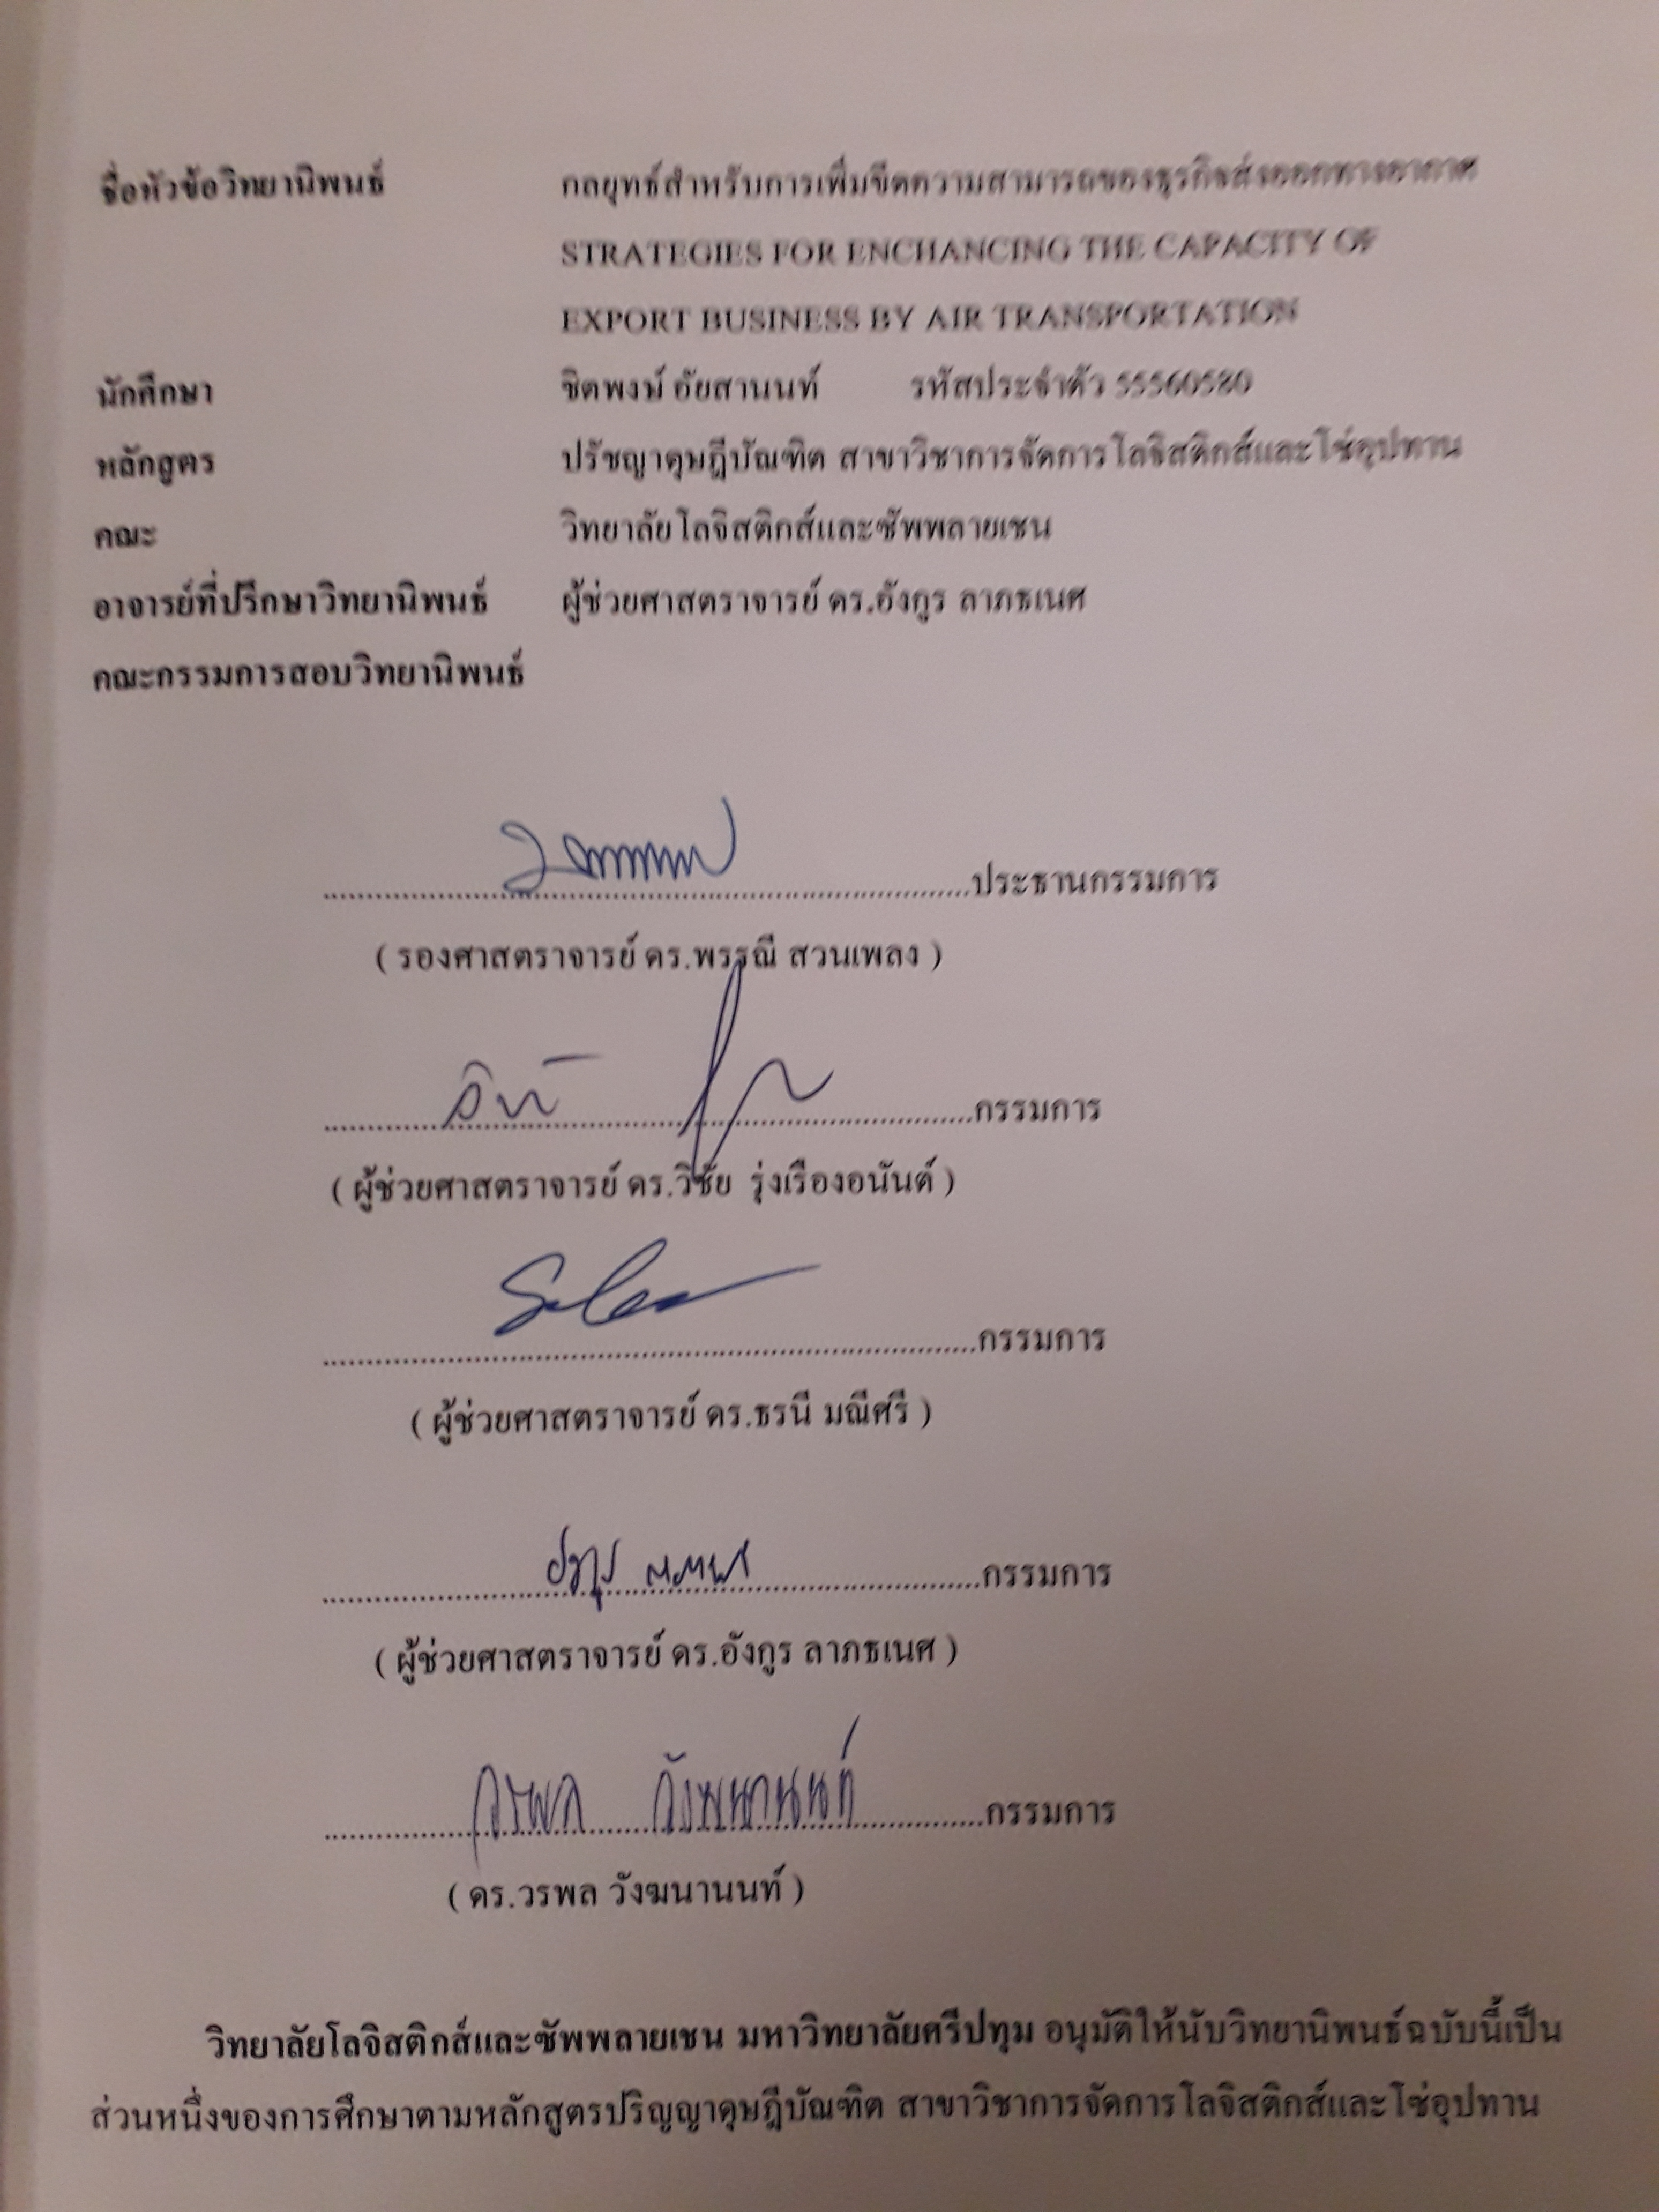 ชื่อหัวข้อวิทยานิพนธ์ กลยุทธ์สำหรับการเพิ่มขีดความสามารถของธุรกิจส่งออกทางอากาศ
STRATEGIES FOR ENCHANCING THE CAPACITY OF
EXPORT BUSINESS BY AIR TRANSPORTATION
นักศึกษา ชิตพงษ์ อัยสานนท์ รหัสประจำตัว 55560580
หลักสูตร ปรัชญาดุษฎีบัณฑิต สาขาวิชาการจัดการโลจิสติกส์และโซ่อุปทาน
คณะ วิทยาลัยโลจิสติกส์และซัพพลายเชน
อาจารย์ที่ปรึกษาวิทยานิพนธ์ ผู้ช่วยศาสตราจารย์ ดร.อังกูร ลาภธเนศ
คณะกรรมการสอบวิทยานิพนธ์
ประธานกรรมการ
( รองศาสตราจารย์ ดร.พรรณี สวนเพลง )
กรรมการ
( ผู้ช่วยศาสตราจารย์ ดร.วิชัย รุ่งเรืองอนันต์ )
กรรมการ
( ผู้ช่วยศาสตราจารย์ ดร.ธรนี มณีศรี )
กรรมการ
( ผู้ช่วยศาสตราจารย์ ดร.อังกูร ลาภธเนศ )
วรพล วังฆนานนท์ กรรมการ
( ดร.วรพล วังฆนานนท์ )
วิทยาลัยโลจิสติกส์และซัพพลายเชน มหาวิทยาลัยศรีปทุม อนุมัติให้นับวิทยานิพนธ์ฉบับนี้เป็น
ส่วนหนึ่งของการศึกษาตามหลักสูตรปริญญาดุษฎีบัณฑิต สาขาวิชาการจัดการโลจิสติกส์และโซ่อุปทาน